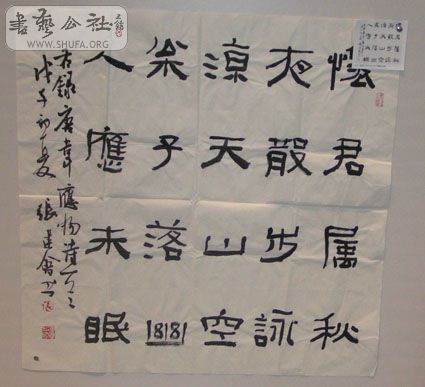 書藝公社
WWW.SHUFA.ORG
懷君属秋
夜散步詠
凉天山空
枀子落幽
人應未眠
右錄唐韋應物詩一首
戊子初夏 張建會书